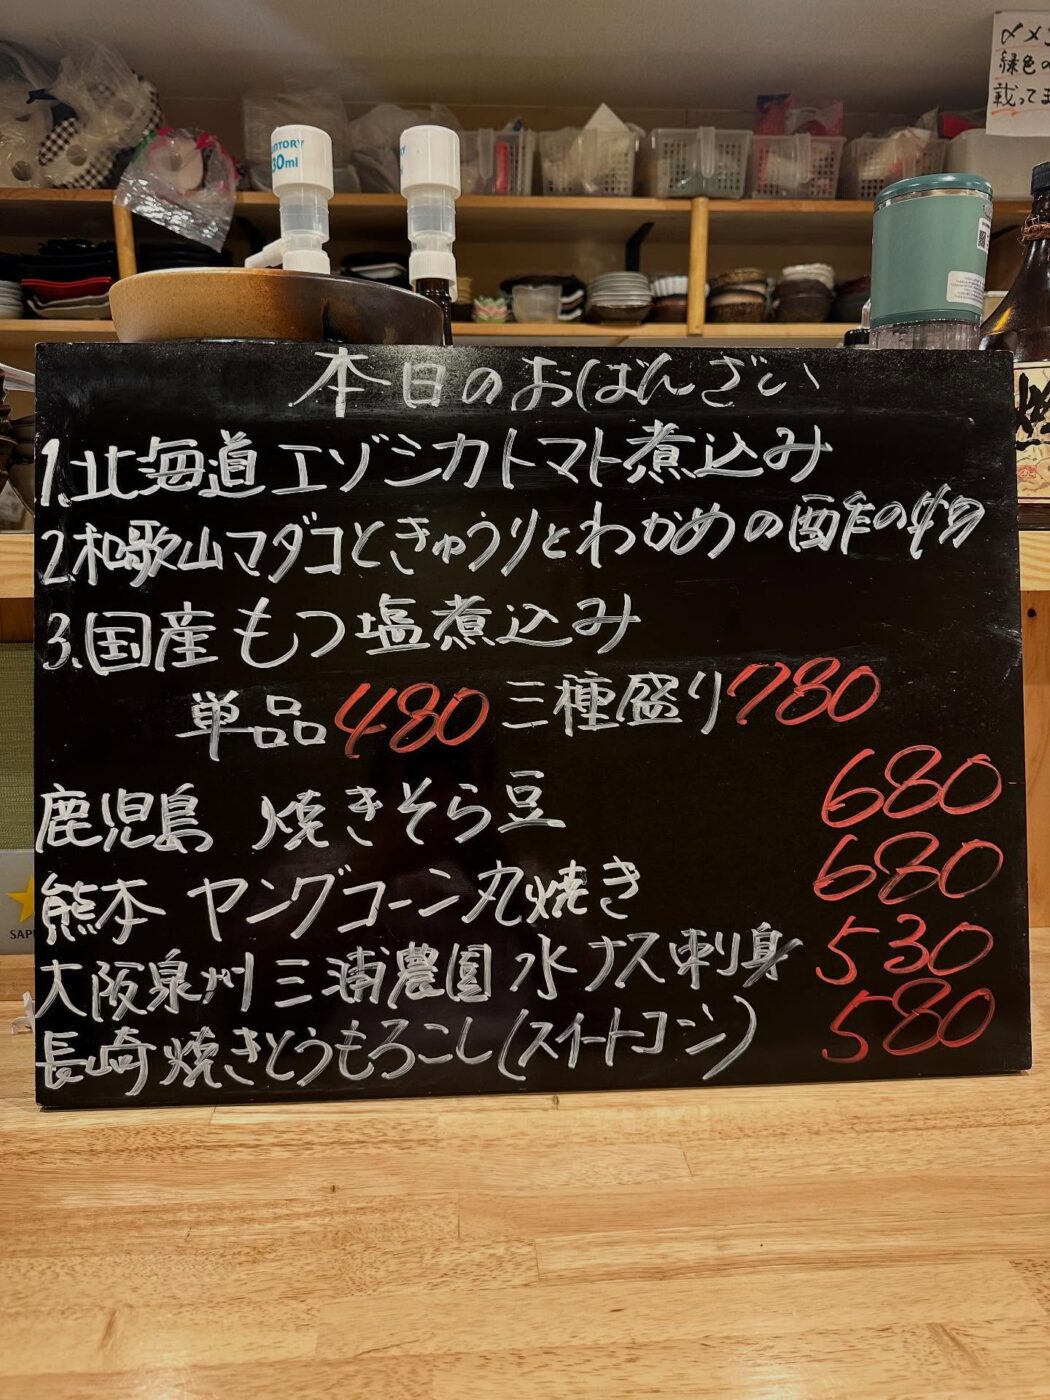 〆メニ
緑色の
載ってま
NTORY
30ml
本日のおばんざい
1.北海道エゾシカトマト煮込み
2.和歌山マダコときゅうりとわかめの酢の物
3.国産もつ塩煮込み
単品480 三種盛り780
鹿児島 焼きそら豆 680
熊本 ヤングコーン丸焼き 680
大阪泉州三浦農園水ナス刺り身 530
長崎焼きとうもろこし(スイートコーン) 580
SAP